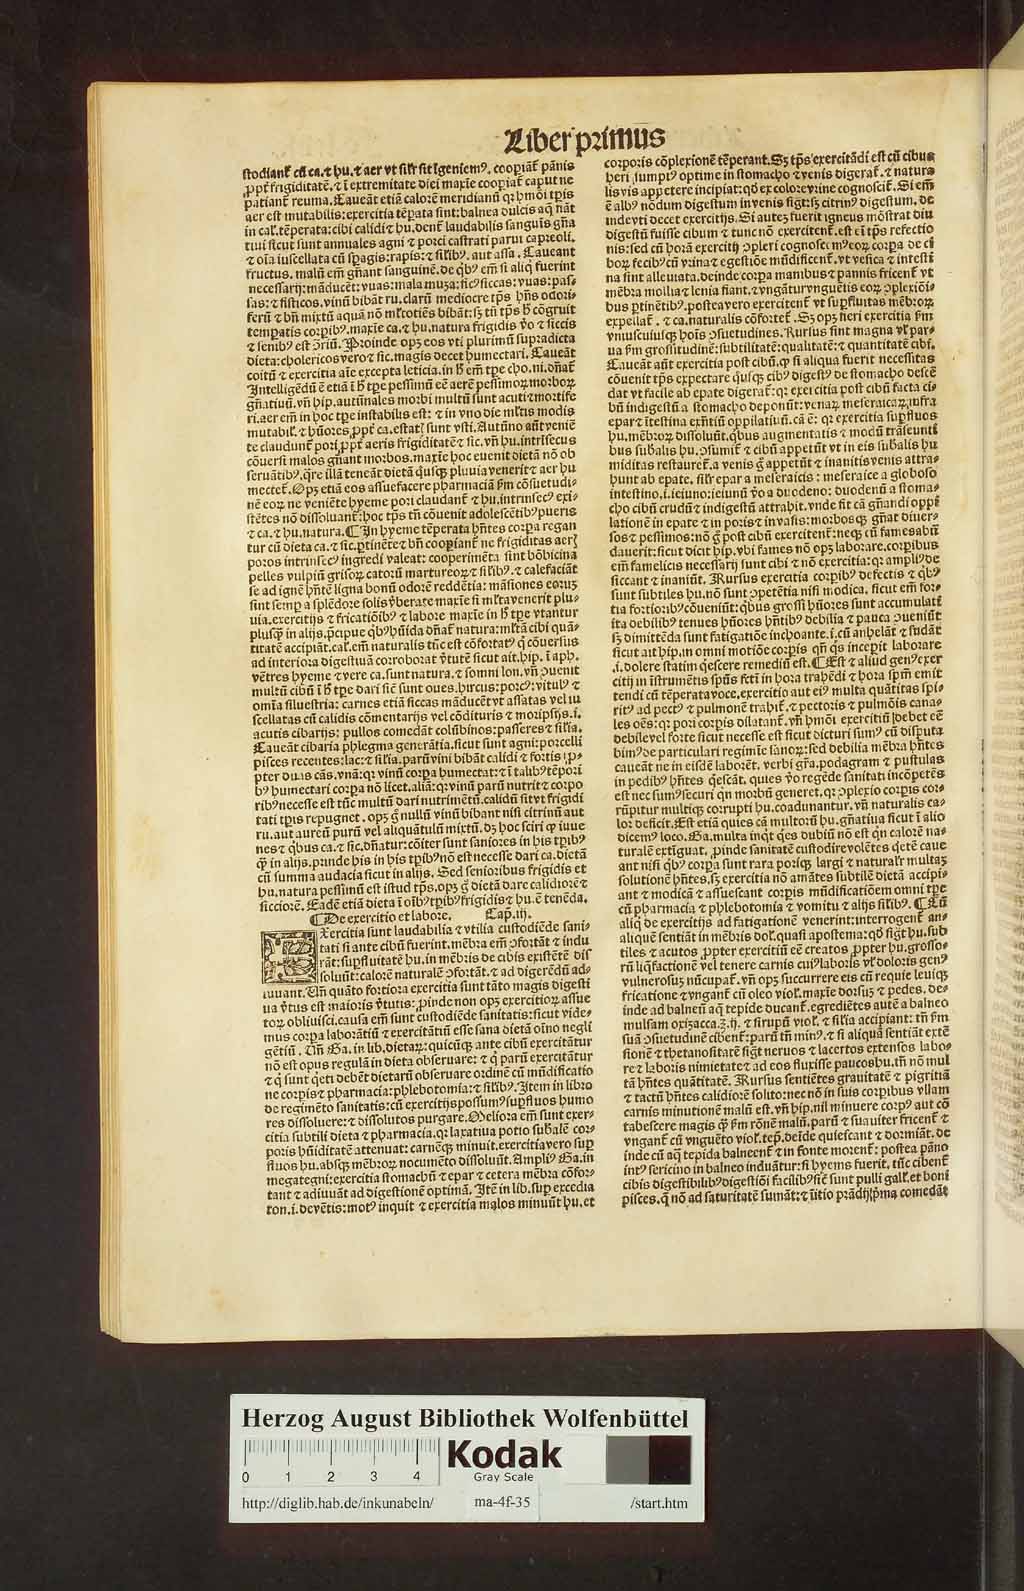 Liber primus
stodiant᷑ cū ca. ⁊ hu. ⁊ aer vt sil᷑r sit īgeniemꝰ. coopiāt᷑ pānis
ꝓpt᷑ frigiditatē. ⁊ ī extremitate diei maxīe coopiāt᷑ caput ne
patiant᷑ reuma. Caueāt etiā calorē meridianū qꝛ hmōi tp̄is
aer est mutabilis: exercitia tēpata sint: balnea dulcis aq̄ nāt
in cal᷑. tēperata: cibi calidi ⁊ hu. dent᷑ laudabilis sanguīs gn̄a
tiui sicut sunt annuales agni ⁊ porci castrati parui capreoli.
⁊ oīa iuscellata cū spagis: rapis: ⁊ sil᷑ibꝰ. aut assa. Caueant
fructus. malū em̄ gn̄ant sanguinē. de qͥbꝰ em̄ si aliq̄ fuerint
necessarij: māducēt: vuas: mala muza: ficꝰ siccas: vuas: pas⸗
sas: ⁊ fisticos. vinū bibāt ru. clarū mediocre tp̄s hn̄s odori⸗
ferū ⁊ bn̄ mixtū aquā nō ml᷑totiēs bibāt: sꝫ tn̄ tp̄s h̄ cōgruit
temꝑatis corpibꝰ. maxīe ca. ⁊ hu. natura frigidis v̄o ⁊ siccis
⁊ senibꝰ est ꝯriū. Proinde opꝫ eos vti plurimū supradicta
dieta: cholericos vero ⁊ sic. magis decet humectari. Caueāt
coitū ⁊ exercitia aīe excepta leticia. in h̄ em̄ tp̄e cho. ni. dn̄at᷑
Intelligēdū ē etiā ī h̄ tp̄e pessimū eē aerē pessimoꝝ morboꝝ
gn̄atiuū. vn̄ hip. autūnales morbi multū sunt acuti ⁊ mortife
ri. aer em̄ in hoc tp̄e instabilis est: ⁊ in vno die ml᷑tis modis
mutabil᷑. ⁊ hūores ꝓpt᷑ ca. estat᷑ sunt vsti. Autūno aūt veniē
te claudunt᷑ pori ꝓpt᷑ aeris frigiditatē ⁊ sic. vn̄ hu. intrīsecus
cōuersi malos gn̄ant morbos. maxīe hoc euenit dietā nō ob
seruātibꝰ. q̄re illā teneāt dietā qͦusqꝫ pluuia venerit ⁊ aer hu
mectet᷑. Opꝫ etiā eos assuefacere pharmaciā ẜm cōsuetudi⸗
nē eoꝝ ne veniēte hyeme pori claudant᷑ ⁊ hu. intrinsecꝰ exi⸗
stētes nō dissoluant᷑: hoc tp̄s tn̄ cōuenit adolescētibꝰ pueris
⁊ ca. ⁊ hu. natura. ¶ In hyeme tēperata hn̄tes corpa regan
tur cū dieta ca. ⁊ sic. ꝑtinēre ⁊ bn̄ coopiant᷑ ne frigiditas aer᷑
poros intrinsecꝰ ingredi valeat: cooperimēta sint bōbicina
pelles vulpiū grisoꝝ catoꝝ martureoꝝ ⁊ sil᷑ibꝰ. ⁊ calefaciāt
se ad ignē hn̄tē ligna bonū odorē reddētia: māsiones eorum
sint semp a splēdore solis v̄berate maxīe si ml᷑ta venerit plu⸗
uia. exercitijs ⁊ fricatiōibꝰ ⁊ labore maxīe in h̄ tp̄e vtantur
plusqͥ in alijs. p̄cipue qͥbꝰ hūida dn̄at᷑ natura: ml᷑tā cibi quā⸗
titatē accipiāt. cal᷑. em̄ naturalis tūc est cōfortatꝰ q̄ cōuersus
ad interiora digestiuā corroborat v̄tutē sicut ait. hip. ī aph.
vētres hyeme ⁊ vere ca. sunt natura. ⁊ somni lon. vn̄ ꝯuenit
multū cibū ī h̄ tp̄e dari sic̄ sunt oues. hircus: porcꝰ: vitulꝰ ⁊
omīa siluestria: carnes etiā siccas māducēt vt assatas vel iu
scellatas cū calidis cōmentarijs vel cōdituris ⁊ moripsijs. i.
acutis cibarijs: pullos comedāt colūbinos: passeres ⁊ sil᷑ia.
Caueāt cibaria phlegma generātia. sicut sunt agni: porcelli
pisces recentes: lac: ⁊ sil᷑ia. parū vini bibāt calidi ⁊ fortis ꝓ⸗
pter duas cās. vnā: qꝛ vinū corpa humectat: ⁊ ī talibꝰ tēpori
bꝰ humectari corpa nō licet. aliā: qꝛ vinū parū nutrit ⁊ corpo
ribꝰ necesse est tūc multū dari nutrimētū. calidū sit vt frigidi
tati tp̄is repugnet. opꝫ g̊ nullū vinū bibant nisi citrinū aut
ru. aut aureū purū vel aliquātulū mixtū. dꝫ hoc sciri qͥ iuue
nes ⁊ qͥbus ca. ⁊ sic. dn̄atur: cōiter sunt saniores in his tp̄ibꝰ
qͥ in alijs. ꝑinde his in his tp̄ibꝰ nō est necesse dari ca. dietā
cū summa audacia sicut in alijs. Sed senioribus frigidis et
hu. natura pessimū est istud tp̄s. opꝫ g̊ dietā dare calidiorē ⁊
sicciorē. Eadē etiā dieta ī oībꝰ tp̄ibꝰ frigidis ⁊ hu. ē tenēda.
¶ De exercitio et labore. Cap. iij.
Exercitia sunt laudabilia ⁊ vtilia custodiēde sani⸗
tati si ante cibū fuerint. mēbra em̄ ꝯfortāt ⁊ indu
rāt: suꝑfluitatē hu. in mēbris de cibis existētē dis
soluūt: calorē naturalē ꝯfortāt. ⁊ ad digerēdū ad⸗
iuuant. Un̄ quāto fortiora exercitia sunt tāto magis digesti
ua v̄tus est maioris v̄tutis: ꝑinde non opꝫ exercitioꝝ assue
toꝝ obliuisci. causa em̄ sunt custodiēde sanitatis: sicut vide⸗
mus corpa laborātiū ⁊ exercitātiū esse sana dietā oīno negli
gētiū. Un̄ Ga. in lib. dietaꝝ: quicūqꝫ ante cibū exercitātur
nō est opus regulā in dieta obseruare: ⁊ q̄ parū exercitātur
⁊ q̄ sunt qͥeti debēt dietarū obseruare ordinē cū mūdificatio
ne corpis ⁊ pharmacia: phlebotomia: ⁊ sil᷑ibꝰ. Item in libro
de regimēto sanitatis: cū exercitijs possumꝰ suꝑfluos humo
res dissoluere: ⁊ dissolutos purgare. Meliora em̄ sunt exer⸗
citia subtili dieta ⁊ pharmacia. qꝛ laxatiua potio sub̄alē cor⸗
poris hūiditatē attenuat: carnēqꝫ minuit. exercitia vero suꝑ
fluos hu. absqꝫ mēbroꝝ nocumēto dissoluūt. Ampliꝰ Ga. in
megategni: exercitia stomachū ⁊ epar ⁊ cetera mēbra cōfor⸗
tant ⁊ adiuuāt ad digestionē optimā. Itē in lib. suꝑ excedia
ton. i. de vētis: motꝰ inquit ⁊ exercitia malos minuūt hu. et
corporis cōplexionē tēperant. Sꝫ tp̄s exercitādi est cū cibus
heri sumptꝰ optime in stomacho ⁊ venis digerat᷑. ⁊ natura
lis vis appetere incipiat: qd̄ ex colore vrine cognoscit᷑. Si em̄
ē albꝰ nōdum digestum in venis sigt᷑: sꝫ citrinꝰ digestum. de
inde vti decet exercitijs. Si autē fuerit igneus mōstrat diu
digestū fuisse cibum ⁊ tunc nō exercitent᷑. est eī tp̄s refectio
nis: sed cū horā exercitij ꝯpleri cognoscimꝰ eoꝝ corpa de ci
boꝝ fecibꝰ cū vrina ⁊ egestiōe mūdificent᷑. vt vesica ⁊ intesti
na sint alleuiata. deinde corpa manibus ⁊ pannis fricent᷑ vt
mēbra mollia ⁊ lenia fiant. ⁊ vngātur vnguētis eoꝝ ꝯplexiōi⸗
bus ꝑtinētibꝰ. postea vero exercitent᷑ vt suꝑfluitas mēbroꝝ
expellat᷑. ⁊ ca. naturalis cōfortet᷑. Sꝫ opꝫ fieri exercitia ẜm
vniuscuiusqꝫ hoīs ꝯsuetudines. Rursus sint magna vl᷑ par⸗
ua ẜm grossitudinē: subtilitatē: qualitatē: ⁊ quantitatē cibi.
Caueāt aūt exercitia post cibū. qͥ si aliqua fuerit necessitas
cōuenit tp̄s expectare qͦusqꝫ cibꝰ digestꝰ de stomacho descē
dat vt facile ab epate digerat᷑: qꝛ exercitia post cibū facta ci⸗
bū indigestū a stomacho deponūt: venaꝝ meseraicaꝝ infra
epar ⁊ ītestina exn̄tiū oppilatiuū. cā ē: qꝛ exercitia suꝑfluos
hu. mēbroꝝ dissoluūt. qͥbus augmentatis ⁊ modū trāseunti
bus sub̄alis hu. ꝯsumit᷑ ⁊ cibū appetūt vt in eis sub̄alis hu
miditas restauret᷑. a venis g̊ appetūt ⁊ inanitis venis attra⸗
hunt ab epate. sil᷑r epar a meseraicis: meseraice a globoso
intestino. i. ieiuno: ieiunū v̄o a duodeno: duodenū a stoma⸗
cho cibū crudū ⁊ indigestū attrahit. vnde fit cā gn̄andi oppi
lationē in epate ⁊ in poris ⁊ in vasis: morbosqꝫ gn̄at diuer⸗
sos ⁊ pessimos: nō g̊ post cibū exercitent᷑: neqꝫ cū fames abū
dauerit: sicut dicit hip. vbi fames nō opꝫ laborare. corpibus
em̄ famelicis necessarij sunt cibi ⁊ nō exercitia: qꝛ ampliꝰ de
siccant ⁊ inaniūt. Rursus exercitia corpibꝰ defectis ⁊ qͥbꝰ
sunt subtiles hu. nō sunt ꝯpetētia nisi modica. sicut em̄ for⸗
tia fortioribꝰ cōueniūt: qͥbus grossi hūores sunt accumulati
ita debilibꝰ tenues hūores hn̄tibꝰ debilia ⁊ pauca ꝯueniūt
sꝫ dimittēda sunt fatigatiōe inchoante. i. cū anhelāt ⁊ sudāt
sicut ait hip. in omni motiōe corpis qn̄ qͥs incepit laborare
. i. dolere statim qͥescere remediū est. ¶ Est ⁊ aliud genꝰ exer
citij in īstrumētis spūs fctū in hora trahēdi ⁊ hora spm̄ emit
tendi cū tēperata voce. exercitio aut eiꝰ multa quātitas spi⸗
ritꝰ ad pectꝰ ⁊ pulmonē trahit᷑. ⁊ pectoris ⁊ pulmōis cana⸗
les oēs: qꝛ pori corpis dilatant᷑. vn̄ hmōi exercitiū debet eē
debile vel forte sicut necesse est sicut dicturi sumꝰ cū disputa
bimꝰ de particulari regimīe sanoꝝ: sed debilia mēbra hn̄tes
caueāt ne in eisdē laborēt. verbi gr̄a. podagram ⁊ pustulas
in pedibꝰ hn̄tes qͥescāt. quies v̄o regēde sanitati incōpetēs
est nec sumꝰ securi qn̄ morbū generet. qꝛ ꝯplexio corpis cor⸗
rūpitur multiqꝫ corrupti hu. coadunantur. vn̄ naturalis ca⸗
lor deficit. Est etiā quies cā multorū hu. gn̄atiua sicut ī alio
dicemꝰ loco. Ga. multa inqͥt qͥes dubiū nō est qn̄ calorē na⸗
turalē extīguat. ꝑinde sanitatē custodire volētes qͥetē caue
ant nisi qͥbꝰ corpa sunt rara poriqꝫ largi ⁊ natural᷑r multaꝫ
solutionē hn̄tes. sꝫ exercitia nō amātes subtilē dietā accipi⸗
ant ⁊ modicā ⁊ assuescant corpis mūdificatiōem omni tp̄e
cū pharmacia ⁊ phlebotomia ⁊ vomitu ⁊ alijs sil᷑ibꝰ. ¶ Cū
aliqͥ de exercitijs ad fatigationē venerint: interrogent᷑ an⸗
aliquē sentiāt in mēbris dol᷑. quasi apostema: qd̄ sigt᷑ hu. sub
tiles ⁊ acutos ꝓpter exercitiū eē creatos ꝓpter hu. grosso⸗
rū liq̄factionē vel tenere carnis cuiꝰ laboris vl᷑ doloris genꝰ
vulnerosuꝫ nūcupat᷑. vn̄ opꝫ succurrere eis cū requie leuiqꝫ
fricatione ⁊ vngant᷑ cū oleo viol᷑. maxīe dorsuꝫ ⁊ pedes. de⸗
inde ad balneū aq̄ tepide ducant᷑. egrediētes autē a balneo
mulsam oxizacca. ʒ. ij. ⁊ sirupū viol᷑. ⁊ sil᷑ia accipiant: tn̄ ẜm
suā ꝯsuetudinē cibent᷑: parū tn̄ minꝰ. ⁊ si aliqua sentiāt extē
sionē ⁊ thetanositatē sigt᷑ neruos ⁊ lacertos extensos labo⸗
re ⁊ laboris nimietate ⁊ ad eos fluxisse paucos hu. tn̄ nō mul
tā hn̄tes quātitatē. Rursus sentiētes grauitatē ⁊ pigritiā
⁊ tactū hn̄tes calidiorē solito: nec nō in suis corpibus vllam
carnis minutionē malū est. vn̄ hip. nil minuere corpꝰ aut cō
tabescere magis qͥ ẜm rōnē malū. parū ⁊ suauiter fricent᷑ ⁊
vngant᷑ cū vnguēto viol᷑. tep. deīde quiescant ⁊ dormiāt. de
inde cū aq̄ tepida balneent᷑ ⁊ in fonte morent᷑: postea pāno
intꝰ sericino in balneo induātur: si hyems fuerit. tūc cibent᷑
cibis digestibilibꝰ digestiōi facilibꝰ sic̄ sunt pulli gall᷑. et boni
pisces. q̄ nō ad saturitatē sumāt: ⁊ īitio prādij pͥma comedāt
Herzog August Bibliothek Wolfenbüttel
Kodak
Gray Scale
0 1 2 3 4
http://diglib.hab.de/inkunabeln/ ma-4f-35 /start.htm